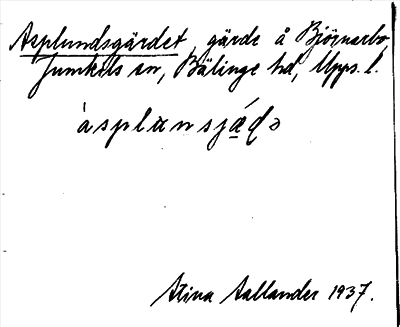 Asplundsgärdet, gärde å Björnarbo,
Jumkils sn, Bälinge hd, Upps. l.
àsplɯnsjǽḍə
Stina Aallander 1937.